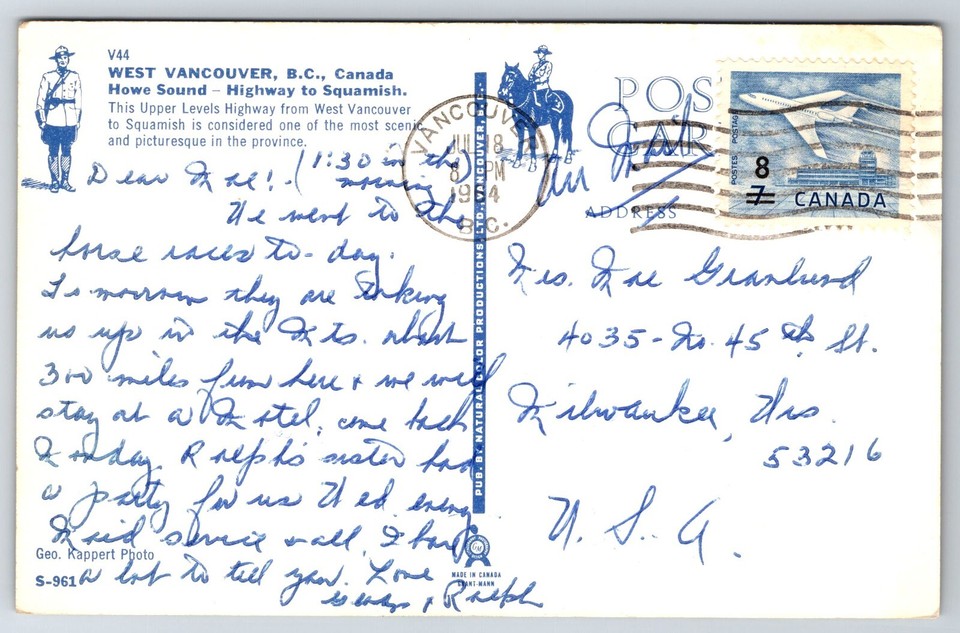 V44
WEST VANCOUVER, B.C., Canada
Howe Sound – Highway to Squamish.
This Upper Levels Highway from West Vancouver
to Squamish is considered one of the most scenic
and picturesque in the province.
Dear Mae! (1:30 in the
morning
We went to the
horse races to-day.
To-morrow they are taking
us up in the Mts. about
300 miles from here & we will
stay at a Motel, come back
Monday. Ralph's sister had
a party for us Wed. eveng
Maid service & all. I have
a lot to tell you. Love
& Ralph
Geo. Kappert Photo
S-961
PUB. BY NATURAL COLOR PRODUCTIONS, LTD., VANCOUVER, B.C.
MADE IN CANADA
GRANT-MANN
VANCOUVER
JUL 18
8 PM
1964
B.C.
POST
CARD
Air Mail
ADDRESS
POSTES POSTAGE
8
7
CANADA
Mrs. Mae Granlund
4035-No. 45th St.
Milwaukee, Wis.
53216
U.S.A.